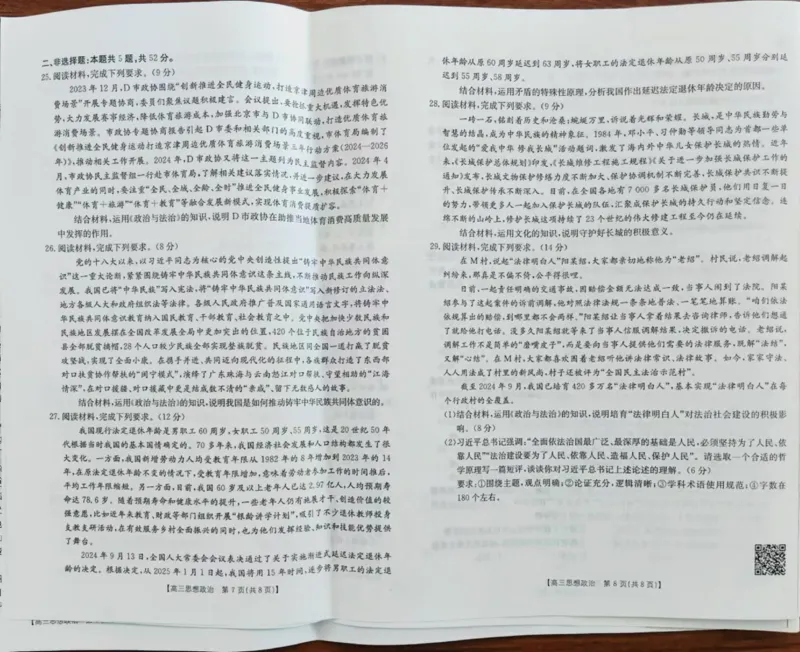 二、非选择题:本题共5题,共52分。
25.阅读材料,完成下列要求。(9分)
2023年12月,D市政协围绕“创新推进全民健身运动,打造京津周边优质体育旅游消
费场景”开展专题协商,委员们聚焦议题积极建言。会议提出,要抢抓重大机遇,发挥特色优
势,大力发展赛事经济,降低体育赛市,加强北京市与D市协同联动,打造优质体育旅
游消费场景。市政协专题协商报告引起D市委和相关部门的高度重视,市体育局编制了
《创新推进全民健身运动打造京津周边优质体育旅游消费场景三年行动方案(2024—2026
年)》,推动相关工作开展。2024年,D市政协又将这一主题列为民主监督内容。2024年4
月,市政协民主监督组一行赴市体育局,了解相关建议落实情况,并进一步建议,在大力发展
体育产业的同时,要注重“全民、全域、全龄、全时”推进全民健身事业发展,积极探索“体育+
健康”“体育+旅游”“体育+教育”等融合发展新模式,实现体育消费提质扩容。
结合材料,运用《政治与法治》的知识,说明D市政协在助推当地体育消费高质量发展
中发挥的作用。
26.阅读材料,完成下列要求。(8分)
党的十八大以来,以习近平同志为核心的党中央创造性提出“铸牢中华民族共同体意
识”这一重大论断,紧紧围绕铸牢中华民族共同体意识这条主线,不断推动民族工作向纵深
发展。我国已将“中华民族”写入宪法,将“铸牢中华民族共同体意识”写入新修订的立法法、
地方各级人大和政府组织法等法律。各级人民政府推广普及国家通用语言文字,将铸牢中
华民族共同体意识教育纳入国民教育、干部教育、社会教育之中。党中央把加快少数民族和
民族地区发展摆在全国改革发展全局中更加突出的位置,420个位于民族自治地方的贫困
县全部脱贫摘帽,28个人口较少民族全部实现整族脱贫。民族地区同全国一道打赢了脱贫
攻坚战,实现了全面小康。在携手并进、共同迈向现代化的征程中,各族群众打造了东西部
对口扶贫协作帮扶的“闽宁模式”,演绎了广东珠海与云南怒江对口帮扶、守望相助的“江海
情深”,在对口援疆、对口援藏中更是结成数不清的“亲戚”,留下无数感人的故事。
结合材料,运用《政治与法治》的知识,说明我国是如何推动铸牢中华民族共同体意识的。
27.阅读材料,完成下列要求。(12分)
我国现行法定退休年龄是男职工60周岁,女职工50周岁、55周岁,这是20世纪50年
代根据当时我国的基本国情确定的。70多年来,我国经济社会发展和人口结构都发生了很
大变化。一方面,我国新增劳动力人均受教育年限从1982年的8年增加到2023年的14
年,在原法定退休年龄不变的情况下,受教育年限增加,意味着劳动者参加工作的时间推后,
平均工作年限缩短。另一方面,目前,我国60岁及以上老年人已达2.97亿人,人均预期寿
命达78.6岁。随着预期寿命和健康水平的提升,一些老年人仍有施展才干、创造价值的较
强意愿,比如近年来教育、财政等部门组织开展“银龄讲学计划”,吸引了不少退休教师投身
支教支研活动,在有效服务乡村全面振兴的同时,也为他们发挥经验、知识和技能优势提供
了舞台。
2024年9月13日,全国人大常委会会议表决通过了关于实施渐进式延迟法定退休年
龄的决定。根据决定,从2025年1月1日起,我国将用15年时间,逐步将男职工的法定退
【高三思想政治 第7页(共8页)】
休年龄从原60周岁延迟到63周岁,将女职工的法定退休年龄从原50周岁、55周岁分别延
迟到55周岁、58周岁。
结合材料,运用矛盾的特殊性原理,分析我国作出延迟法定退休年龄决定的原因。
28.阅读材料,完成下列要求。(9分)
一砖一石,铭刻着历史和沧桑;蜿蜒万里,诉说着光辉和荣耀。长城,是中华民族勤劳与
智慧的结晶,成为中华民族的精神象征。1984年,邓小平、习仲勋等领导同志为首都一些单
位发起的“爱我中华 修我长城”活动题词,激发了海内外中华儿女保护长城的热情。近年
来,《长城保护总体规划》印发,《长城维修工程施工规程》《关于进一步加强长城保护工作的
通知》发布,长城文物保护修缮力度不断加大、保护协调机制不断完善,长城保护共识不断提
升、长城保护传承不断深入。目前,在全国各地有7000多名长城保护员,他们用日复一日
的努力,带领更多人一起加入保护长城的队伍,汇聚成保护长城的持久行动和坚定信念。连
绵不断的山岭上,修护长城这项持续了23个世纪的伟大修建工程至今仍在延续。
结合材料,运用文化的知识,说明守护好长城的积极意义。
29.阅读材料,完成下列要求。(14分)
在M村,说起“法律明白人”阳某绍,大家都亲切地称他为“老绍”。村民说,老绍调解起
纠纷来,那真是不偏不倚,公平得很哩。
日前,一起责任明确的交通事故,因赔偿金额无法达成一致,当事人闹到了法院。阳某
绍参与了这起案件的诉前调解,他对照法律法规一条条地看法、一笔笔地算账。“咱们依法
依规算出的赔偿,到哪里都不会两样。”阳某绍让当事人拿着结果去咨询律师,告诉他们想通
了就给他打电话。没多久阳某绍就等来了当事人信服调解结果、决定撤诉的电话。老绍说,
调解工作不是简单的“磨嘴皮子”,而是要向当事人提供他们需要的法律服务,既解“法结”,
又解“心结”。在M村,大家都喜欢围着老绍听他讲法律常识、法律故事。如今,家家守法、
人人用法成了村里的新风尚,村子还被评为“全国民主法治示范村”。
截至2024年9月,我国已培育420多万名“法律明白人”,基本实现“法律明白人”在每
个行政村的全覆盖。
(1)结合材料,运用《政治与法治》的知识,说明培育“法律明白人”对法治社会建设的积极影
响。(8分)
(2)习近平总书记强调:“全面依法治国最广泛、最深厚的基础是人民,必须坚持为了人民、依
靠人民”“法治建设要为了人民、依靠人民、造福人民、保护人民”。请选取一个合适的哲
学原理写一篇短评,谈谈你对习近平总书记上述论述的理解。(6分)
要求:①围绕主题,观点明确;②论证充分,逻辑清晰;③学科术语使用规范;④字数在
180个左右。
【高三思想政治 第8页(共8页)】
【高三思想政治